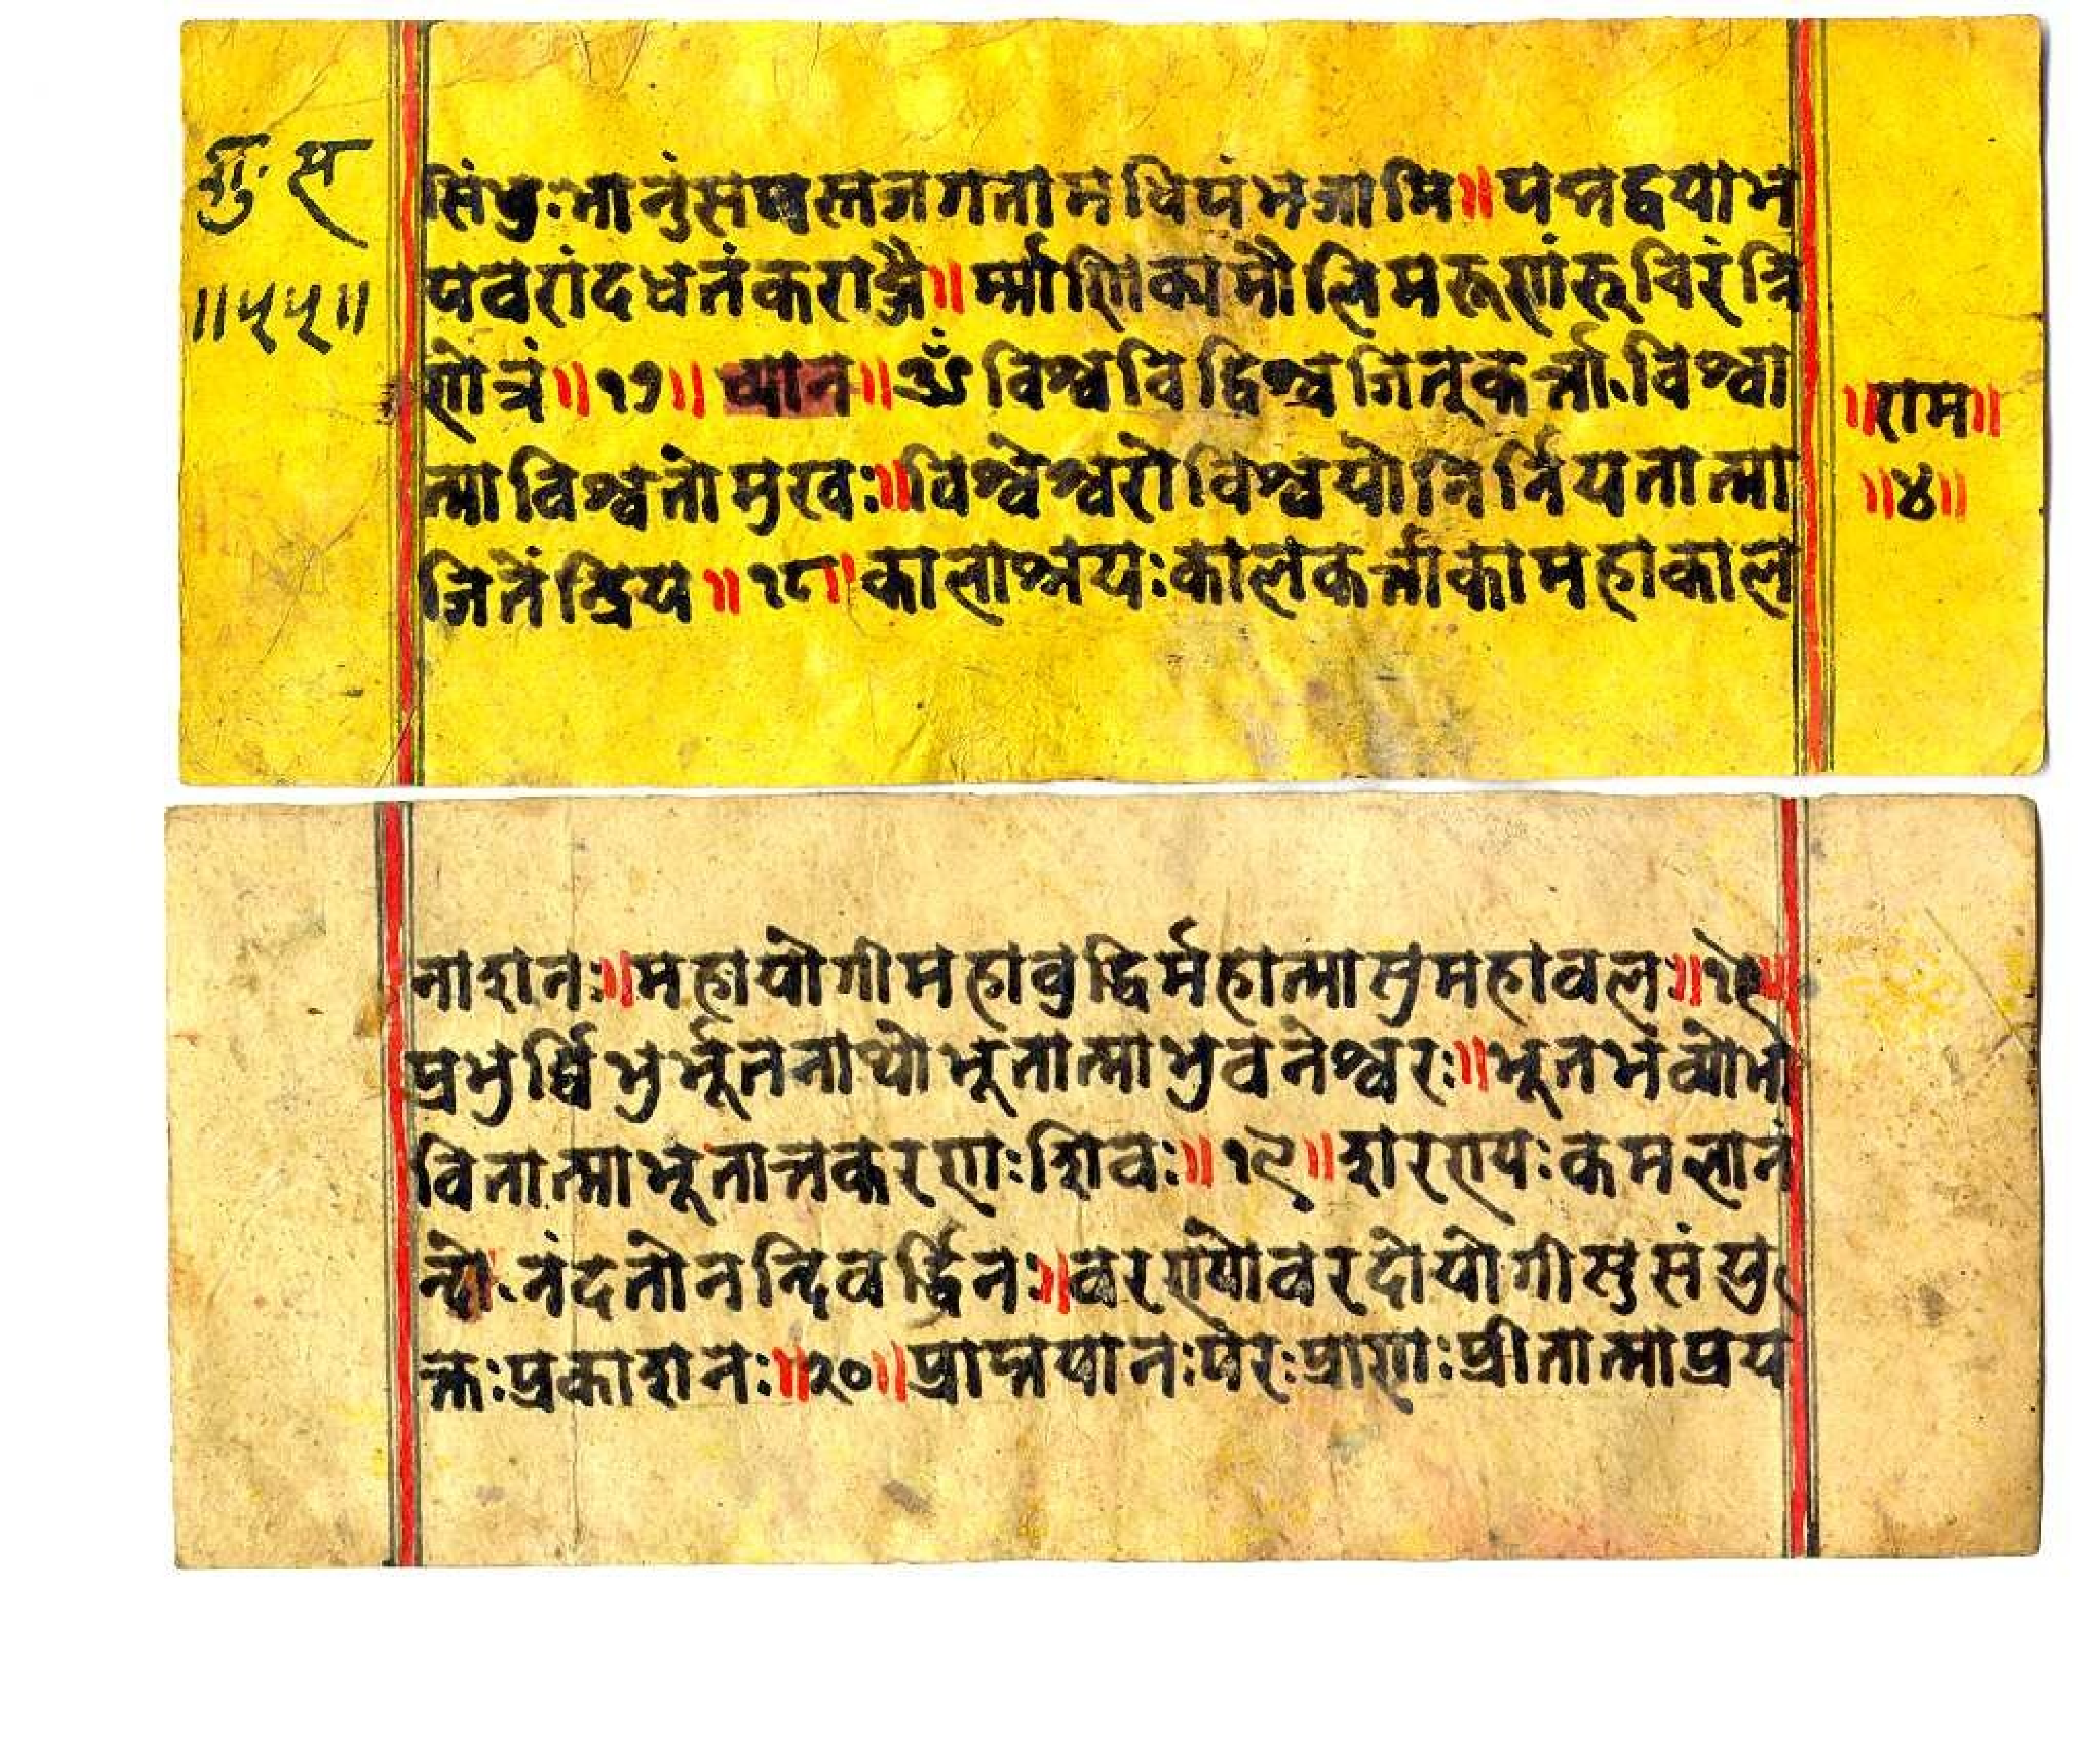 गु. स
॥५५॥
सिंधुःभानुंसमस्तजगतामधिपंभजामि॥पद्मद्वयाभ
यवरांदधतंकराब्जै॥र्माणिक्यमौलिमरूणांरूचिरंत्रि
णेत्रं॥१७॥ ध्यान॥ॐ विश्वविद्विश्वजित्कर्त्ता.विश्वा
त्माविश्वतोमुखः॥विश्वेश्वरोविश्वयोनिर्न्नियतात्मा
जितेंद्रिय॥१८॥कालाश्रयःकालकर्त्ताकामहाकाल
॥राम॥
॥४॥
नाशनः॥महायोगीमहावुद्धिर्महात्मासुमहावलः॥१९॥
प्रभुर्व्विभुर्भूतनाथोभूतात्माभुवनेश्वरः॥भूतभंव्योभो
वितात्माभूतान्तकरणाःशिवः॥१९॥शरण्यःकमलानं
न्दो.नंदतोनन्दिवर्द्धिनः॥वरण्योवरदोयोगीसुसंयु
क्तःप्रकाशनः॥२०॥प्राप्तयानःपरःप्राणाःप्रीतात्माप्रय